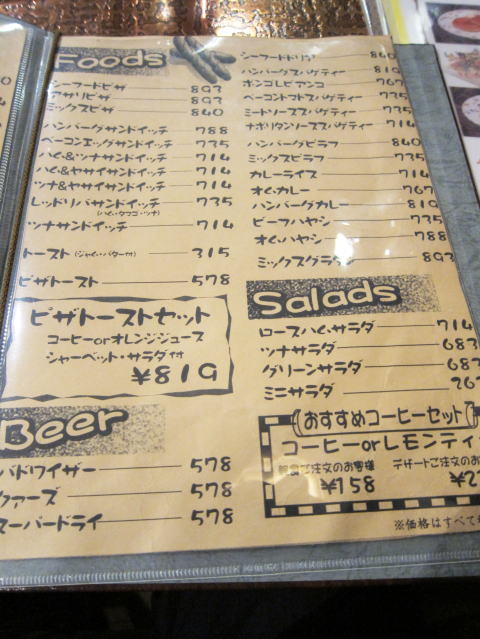 Foods
シーフードピザ 893
アサリピザ 893
ミックスピザ 840
ハンバーグサンドイッチ 788
ベーコンエッグサンドイッチ 735
ハム&ツナサンドイッチ 714
ハム&ヤサイサンドイッチ 714
ツナ&ヤサイサンドイッチ 714
レッドリバサンドイッチ 735
(ハム・タマゴ・ツナ)
ツナサンドイッチ 714
トースト(ジャム・バター付) 315
ピザトースト 578
ピザトーストセット
コーヒーorオレンジジュース
シャーベット・サラダ付
¥819
Beer
バドワイザー 578
ファーズ 578
スーパードライ 578
シーフードドリア 840
ハンバーグスパゲティー 819
ボンゴレビアンコ 767
ベーコントマトスパゲティー 735
ミートソーススパゲティー 714
ナポリタンソーススパゲティー 714
ハンバーグピラフ 840
ミックスピラフ 735
カレーライス 714
オムカレー 767
ハンバーグカレー 819
ビーフハヤシ 735
オムハヤシ 788
ミックスグラタン 893
Salads
ロースハムサラダ 714
ツナサラダ 683
グリーンサラダ 683
ミニサラダ
おすすめコーヒーセット
コーヒーorレモンティ
ご注文のお客様 デザートご注文のお
¥158 ¥2
※価格はすべて